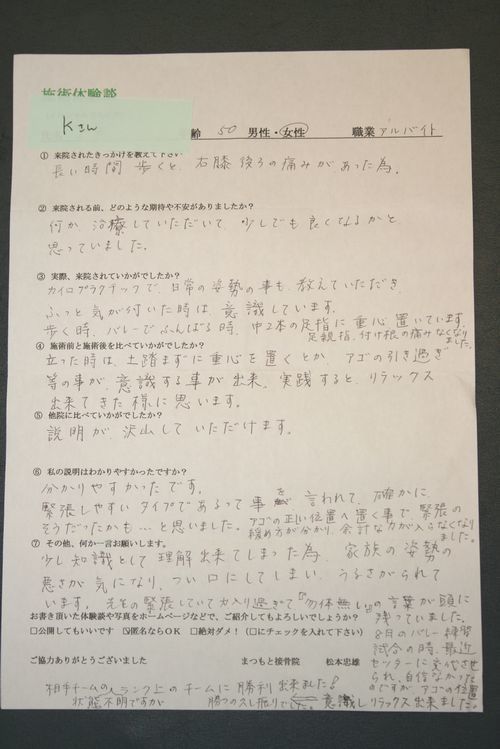 施術体験談
Kさん
齢 50 男性・女性 職業 アルバイト
① 来院されたきっかけを教えて下さい
長い時間 歩くと、右膝後ろの痛みがあった為。
② 来院される前、どのような期待や不安がありましたか?
何か 治療していただいて、少しでも良くなるかと
思っていました。
③ 実際、来院されていかがでしたか?
カイロプラクチックで、日常の姿勢の事も、教えていただき、
ふっと気が付いた時は、意識しています。
歩く時、バレーでふんばる時、中2本の足指に重心置いています。
足親指、付け根の痛みなくなり
ました。
④ 施術前と施術後を比べていかがでしたか?
立った時は、土踏まずに重心を置くとか、アゴの引き過ぎ
等の事が、意識する事が出来、実践すると、リラックス
出来てきた様に思います。
⑤ 他院に比べていかがでしたか?
説明が、沢山していただけます。
⑥ 私の説明はわかりやすかったですか?
分かりやすかったです。
緊張しやすいタイプであるって事を 言われて、確かに
そうだったかも…と思いました。
アゴの正しい位置へ置く事で、緊張の
緩め方が分かり、余計な力が入らなくなり
ました。
⑦ その他、何か一言お願いします。
少し知識として理解出来てしまった為、家族の姿勢の
悪さが気になり、つい口にしてしまい、うるさがられて
います。先生の緊張していて力入り過ぎて『勿体無い』の言葉が頭に
残っていました。
お書き頂いた体験談や写真をホームページなどで、ご紹介してもよろしいでしょうか?
□公開してもいいです ☑匿名ならOK □絶対ダメ!(□にチェックを入れて下さい)
8月のバレー練習
試合の時、最近
センターに交代させ
られ、自信なかった
のですが、アゴの位置
意識しリラックス出来ました。
ご協力ありがとうございました まつもと接骨院 松本忠雄
相手チームの人ランク上のチームに勝利出来ました!
状態不明ですが 勝つの久し振りでした